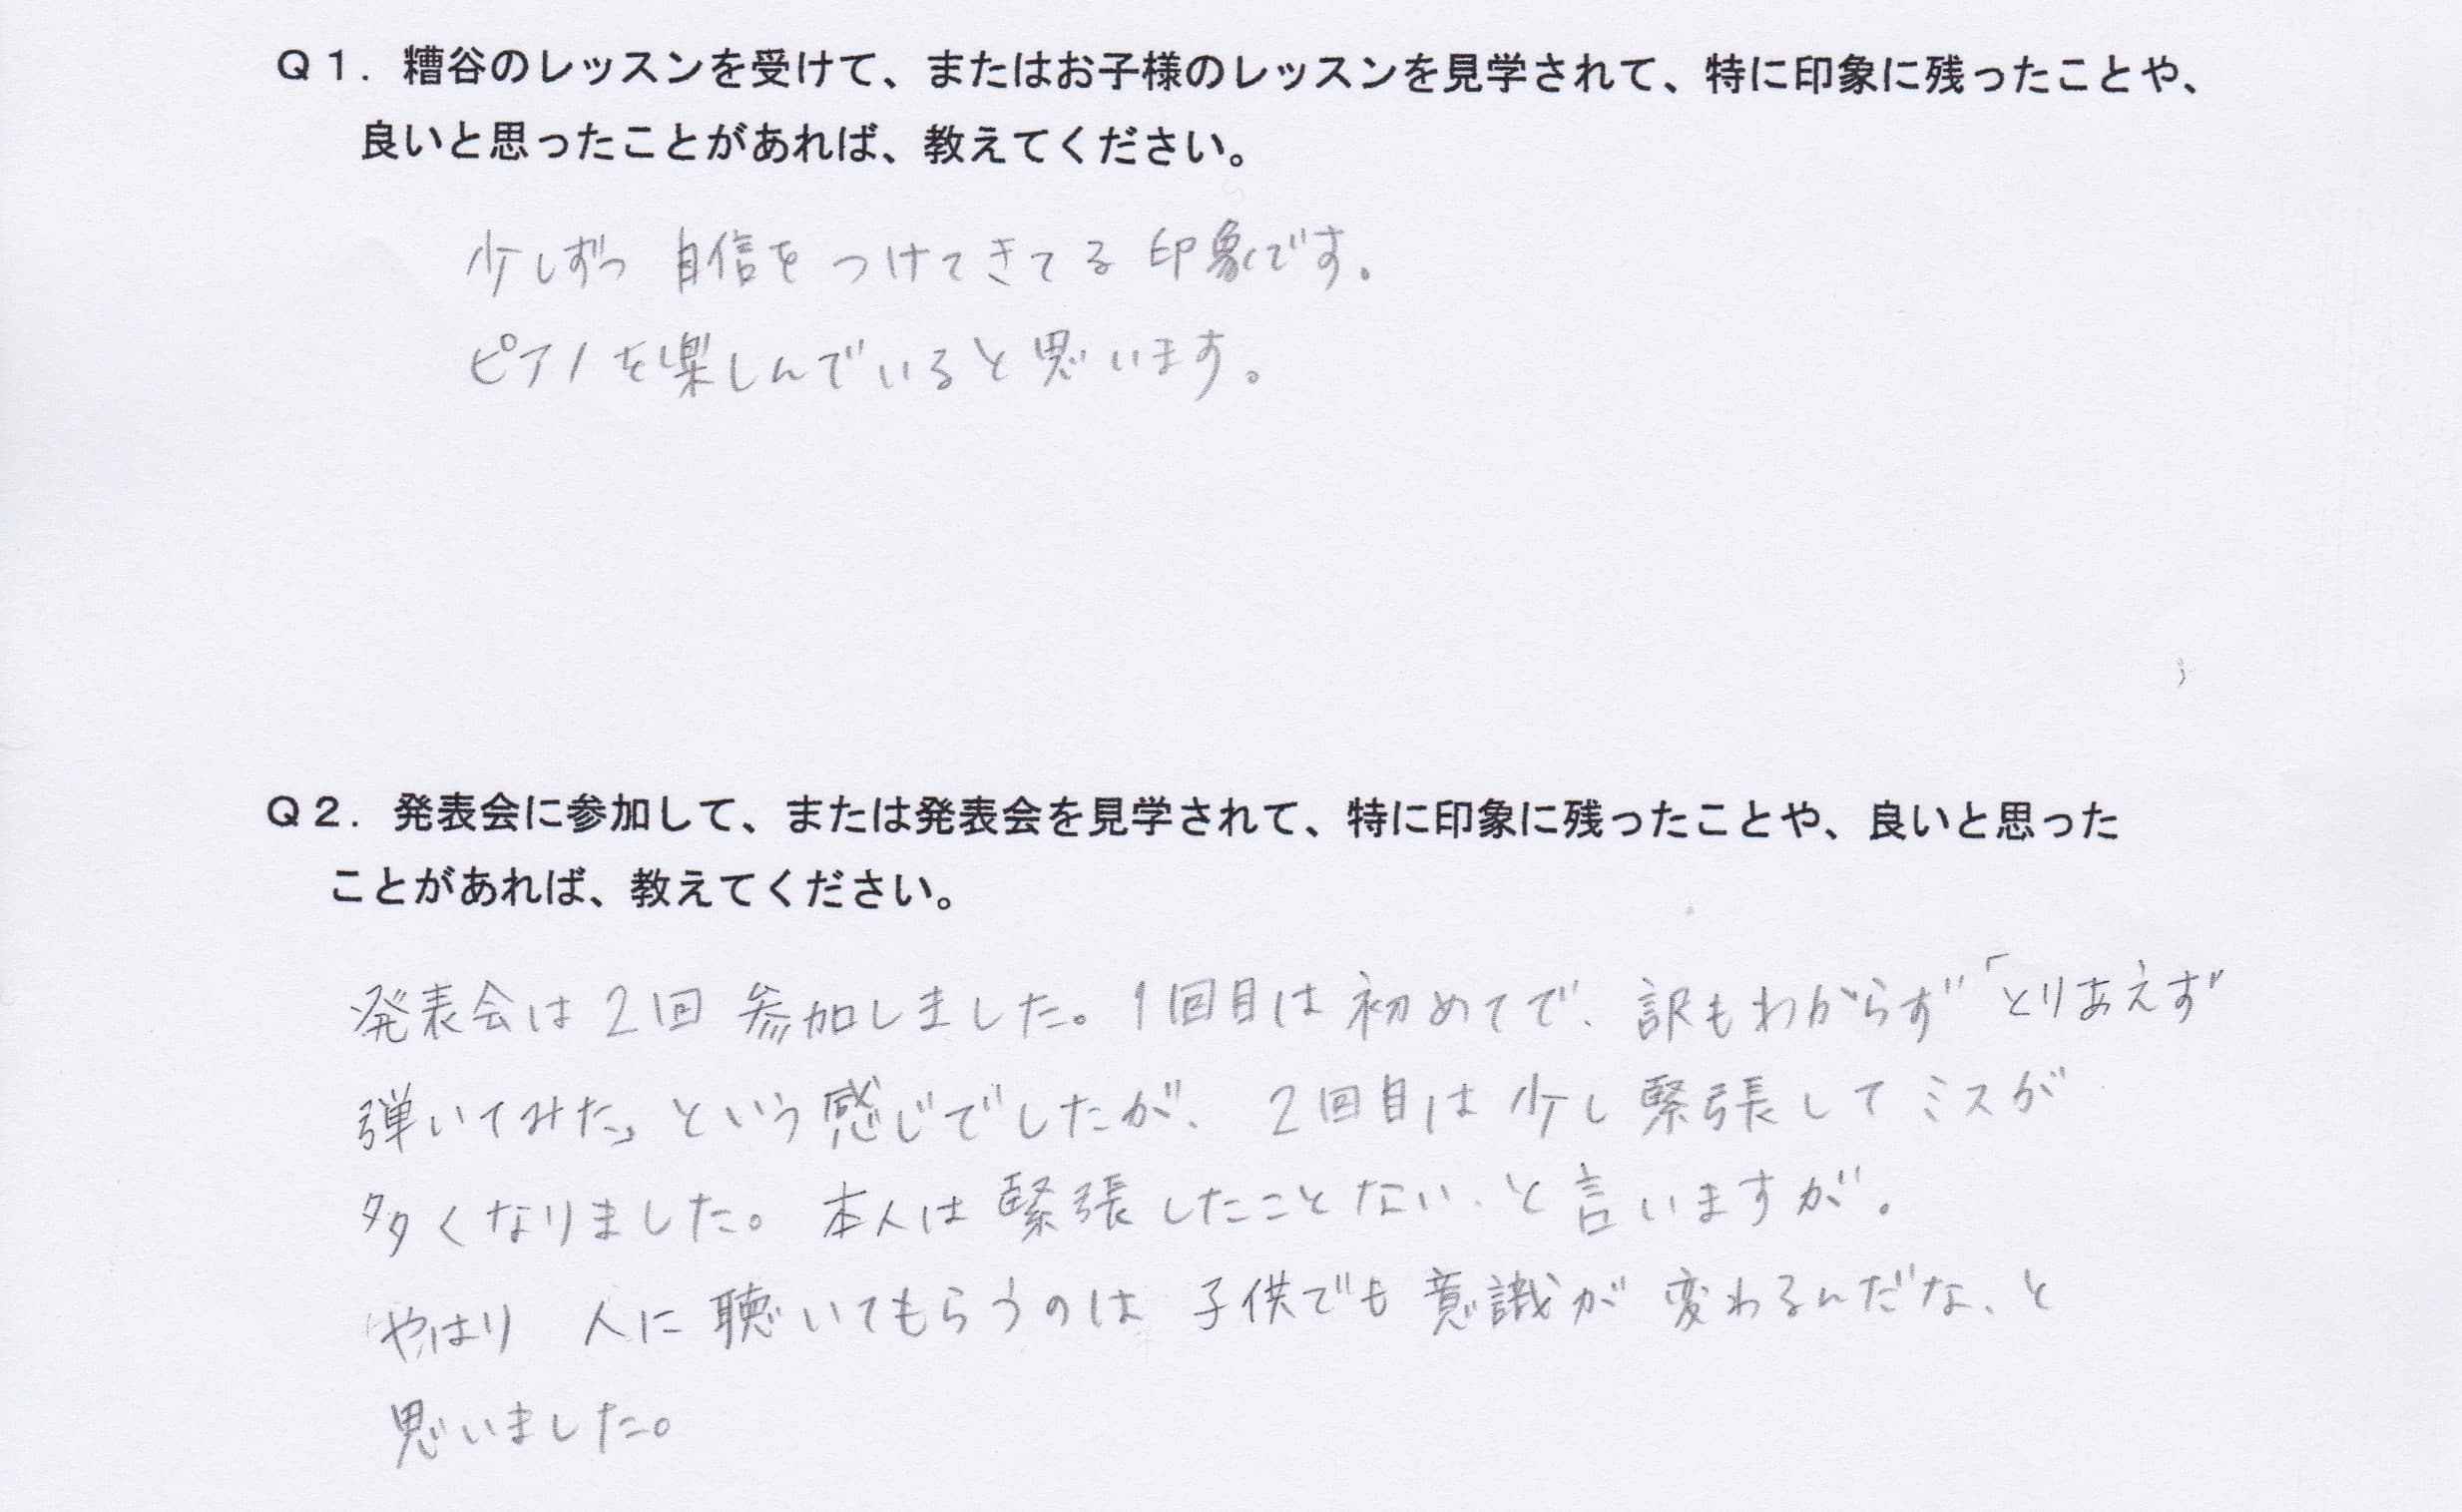 Q1．糟谷のレッスンを受けて、またはお子様のレッスンを見学されて、特に印象に残ったことや、
良いと思ったことがあれば、教えてください。
少しずつ 自信を つけてきてる 印象です。
ピアノを楽しんでいると思います。
Q2．発表会に参加して、または発表会を見学されて、特に印象に残ったことや、良いと思った
ことがあれば、教えてください。
発表会は2回 参加しました。1回目は 初めてで、訳もわからず「とりあえず
弾いてみた」という感じでしたが、2回目は 少し緊張して ミスが
多くなりました。本人は 緊張したことない、と言いますが。
やはり 人に 聴いてもらうのは 子供でも 意識が 変わるんだな、と
思いました。